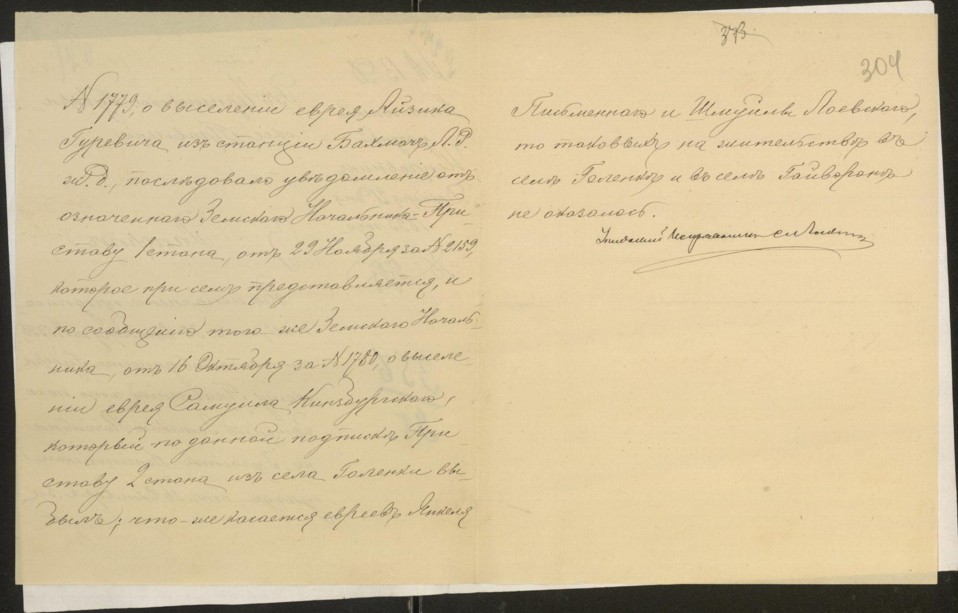 № 1779, о выселеніи еврея Айзика
Гуревича изъ станціи Бахмачъ Л. Р.
ж. д., послѣдовало увѣдомленіе отъ
означеннаго Земскаго Начальника При-
ставу 1 стана, отъ 29 Ноября за № 2159,
которое при семъ представляется, и
по сообщенію того же Земскаго Началь-
ника, отъ 16 Октября за № 1780, о выселе-
ніи еврея Самуила Кинзбургскаго,
который по данной подпискѣ При-
ставу 2 стана изъ села Голенки вы-
былъ; что-же касается евреевъ Янкеля
373.
304
Письменнаго и Шмуиля Лоевскаго,
то таковыхъ на жительствѣ въ
селѣ Голенкѣ и въ селѣ Гайворонѣ
не оказалось.
Исправникъ